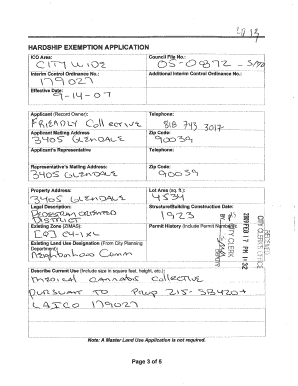 HARDSHIP EXEMPTION APPLICATION
ICO Area: Council File No.:
CITYWIDE 05-0872
Interim Control Ordinance No.: Additional Interim Control Ordinance No.:
179027
Effective Date:
9-14-07
Applicant (Record Owner): Telephone:
FRIENDLY Collective 818 743 3017
Applicant Mailing Address Zip Code:
3405 GLENDALE 90039
Applicant's Representative Telephone:
Representative's Mailing Address Zip Code:
90039
Property Address: Lot Area (sq. ft.):
3405 GLENDALE 4534
Legal Description: Structure/Building Construction Date:
PEDESTRIAN ORIENTED 1923
DISTRICT
Existing Zone (ZIMAS): Permit History (Include Permit Number)
[Q] C4-1XL
Existing Land Use Designation (From City Planning
Department):
Neighborhood Comm
CITY CLERK
BY
DEPUTY
2009 FEB 17 PM
32
RECEIVED
CITY CLERK'S OFFICE
Describe Current Use (Include size in square feet, height, etc.):
Medical Cannabis Collective
PURSUANT TO Prop 215- SB420+
LAICO 179027
Note: A Master Land Use Application is not required.
Page 3 of 5